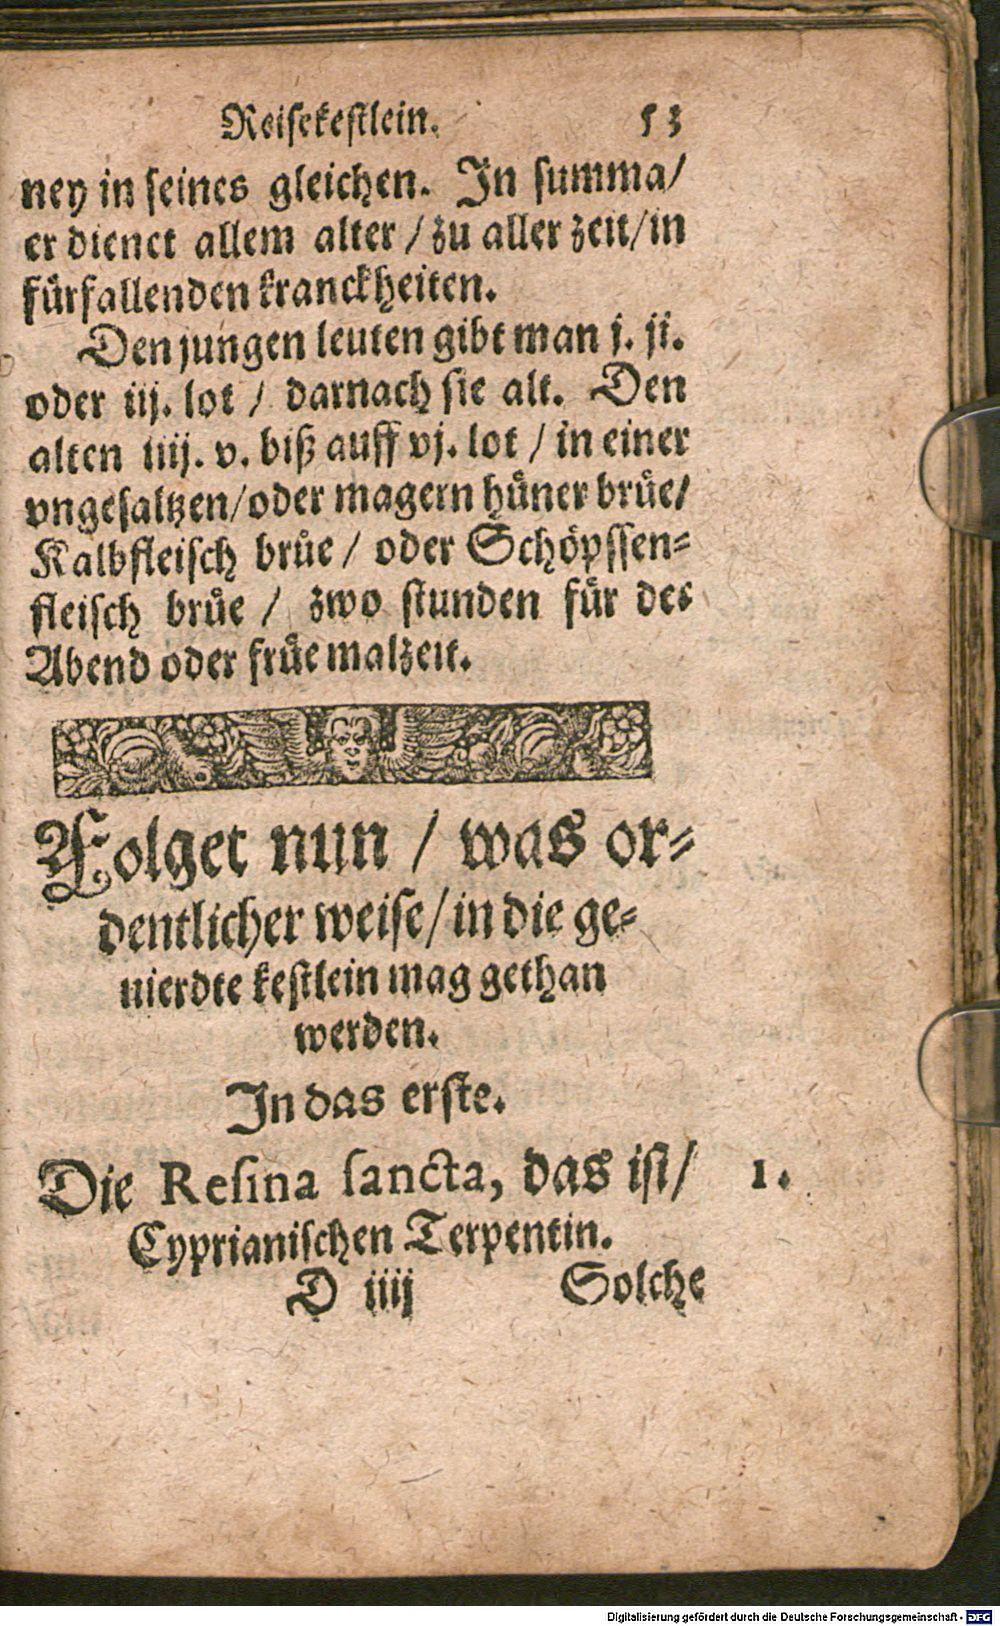 Reisekestlein. 53
ney in seines gleichen. In summa/
er dienet allem alter / zu aller zeit/in
fürfallenden kranckheiten.
Den jungen leuten gibt man j. ij.
oder iij. lot / darnach sie alt. Den
alten iiij. v. biß auff vj. lot / in einer
vngesaltzen/oder magern hüner brüe/
Kalbfleisch brüe / oder Schöpssen⸗
fleisch brüe / zwo stunden für des
Abend oder früe malzeit.
Folget nun / was or⸗
dentlicher weise/in die ge⸗
uierdte kestlein mag gethan
werden.
In das erste.
Die Resina sancta, das ist/ 1.
Cyprianischen Terpentin.
D iiij Solche
Digitalisierung gefördert durch die Deutsche Forschungsgemeinschaft - DFG